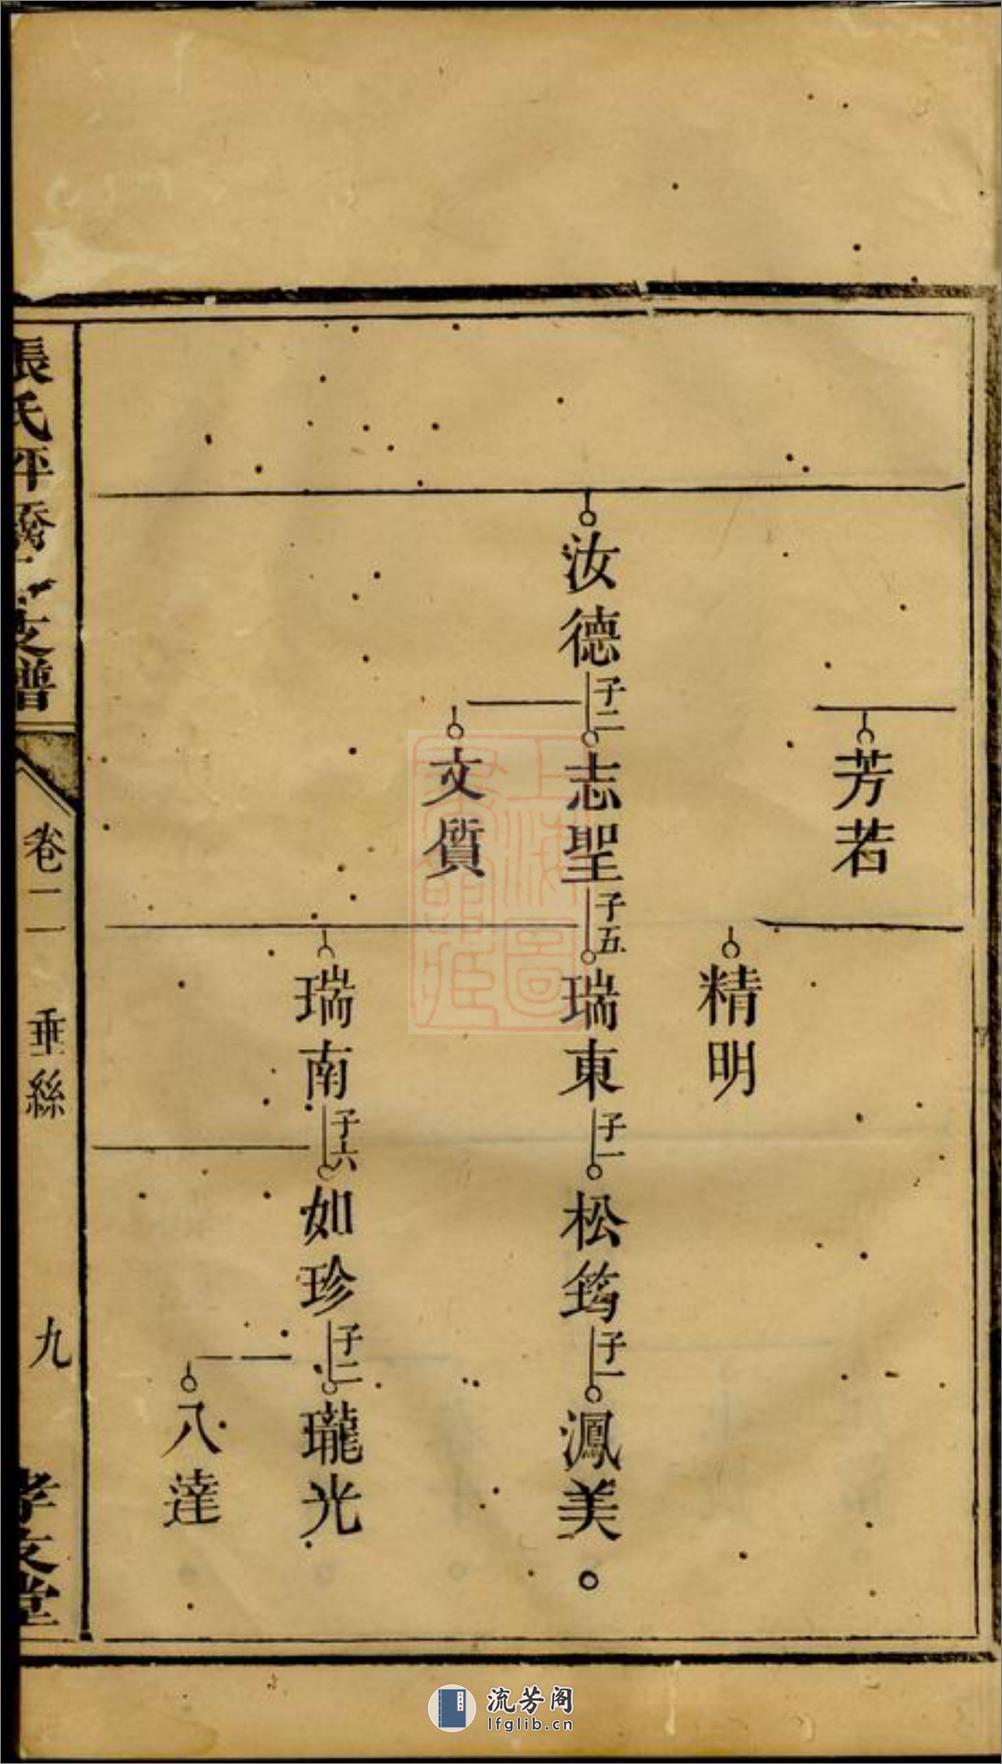 芳若
精明
汝德
子二
志聖
子五
瑞東
子一
松筠
子一
鳳美
文質
瑞南
子六
如珍
子二
瓏光
八達
張氏
支譜
卷二
垂絲
九
孝友堂
上海圖書館藏
流芳阁
lfglib.cn